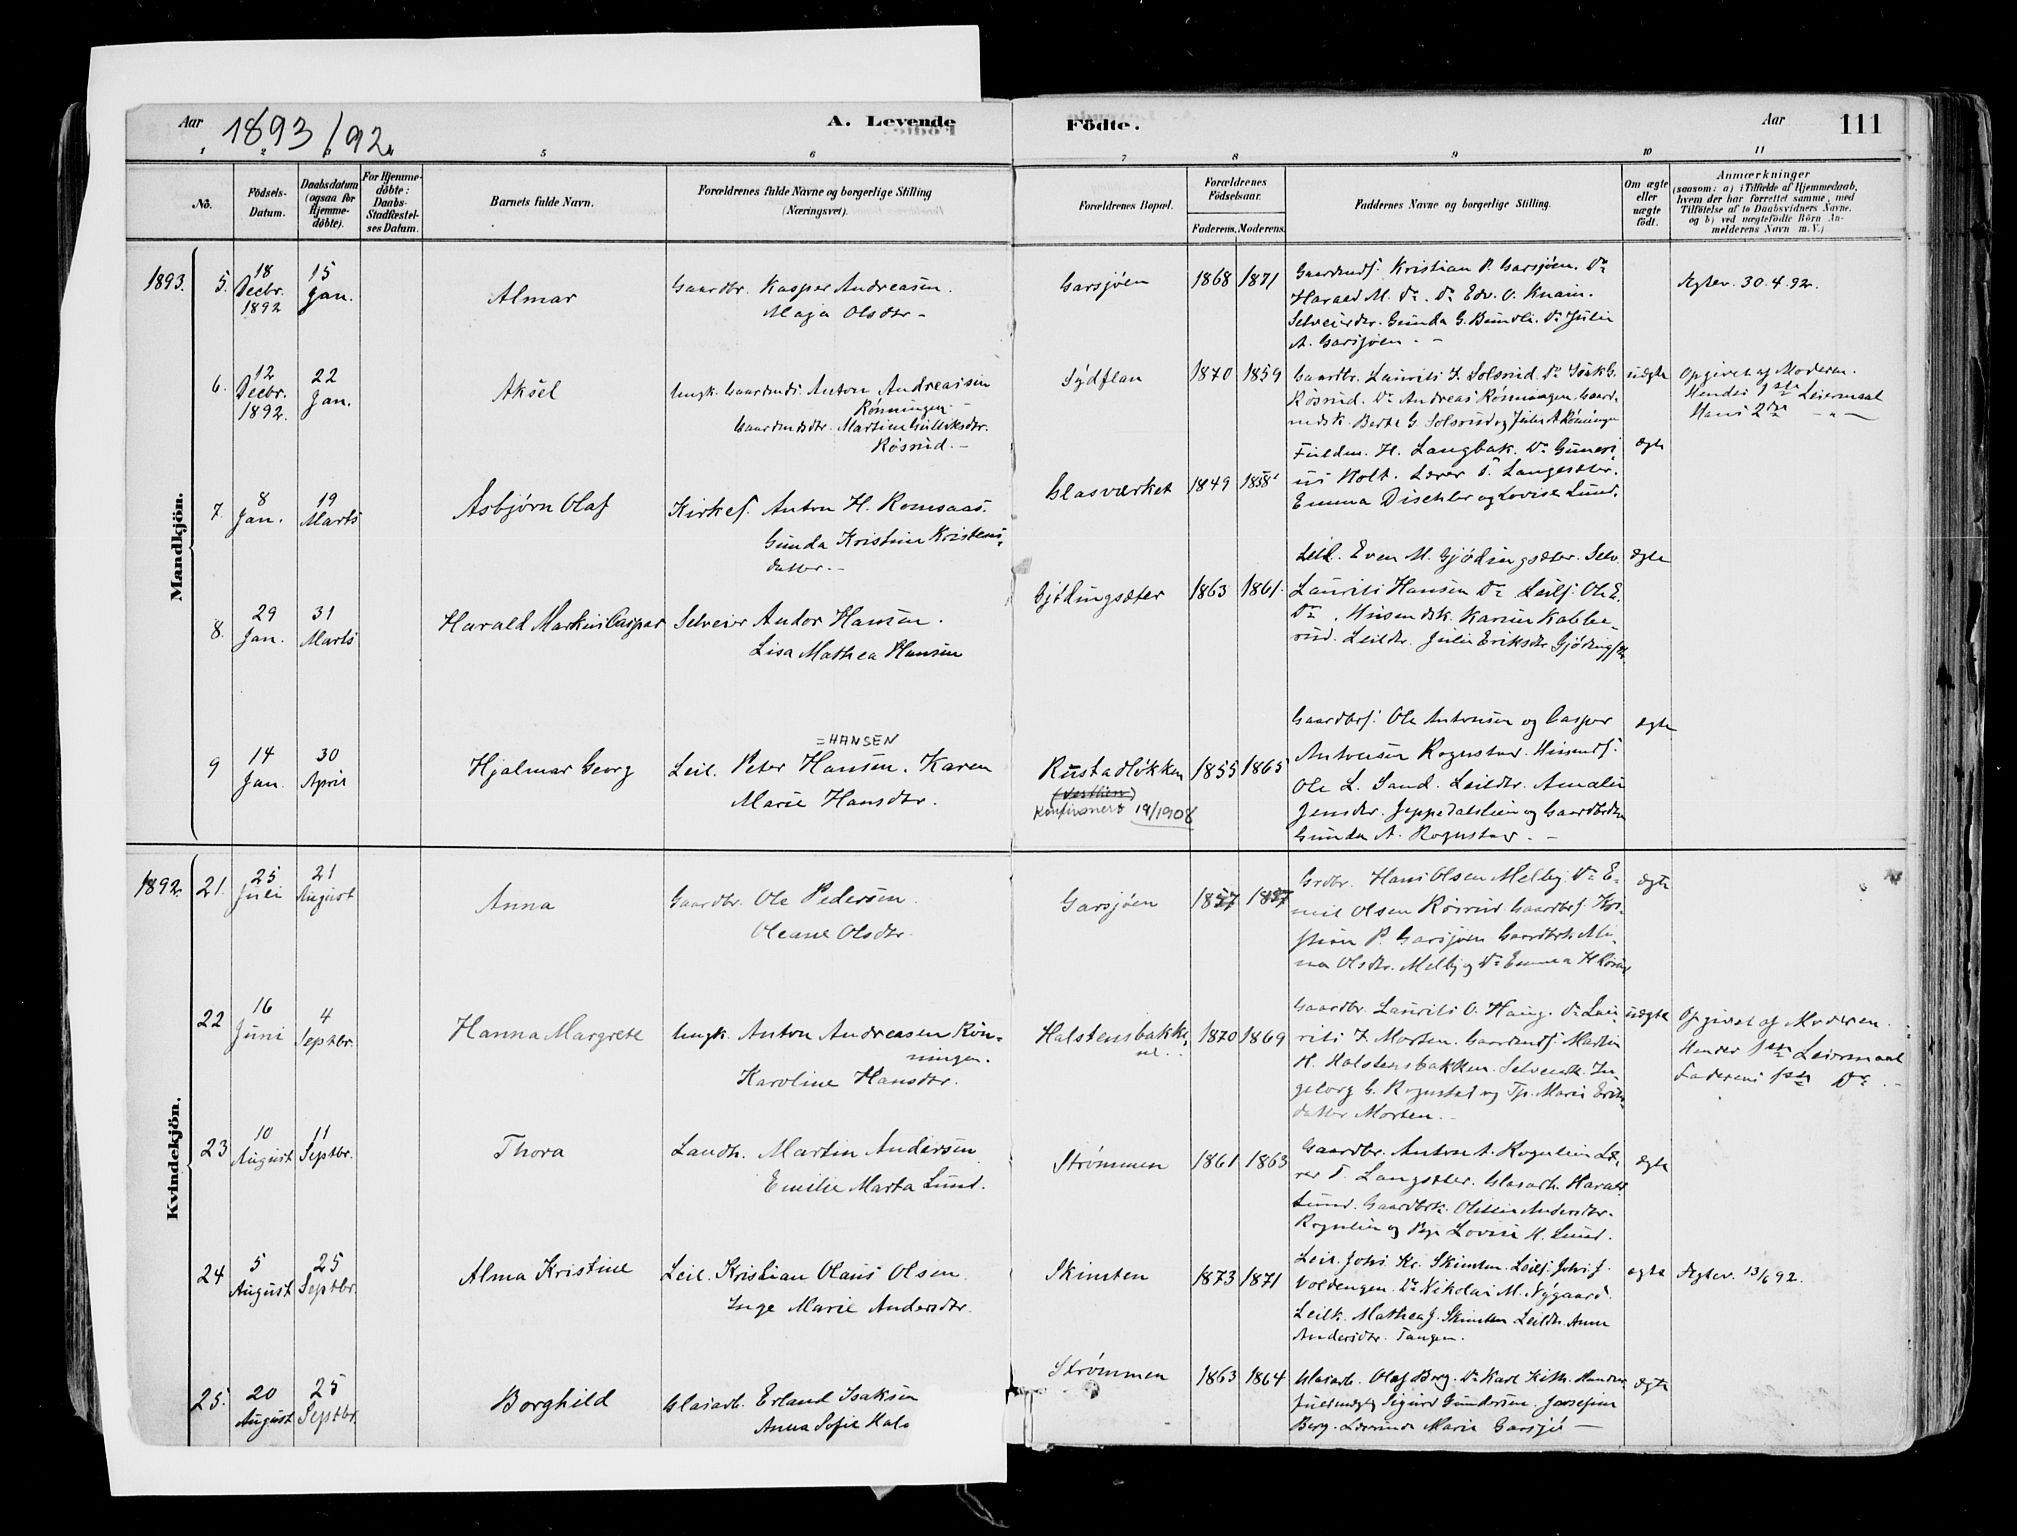 Aar 1893/92. A. Levende Födte. Aar 111
1 2 3 4 5 6 7 8 9 10 11
No. Födsels-Datum. Daabsdatum (ogsaa for Hjemmedöbte). For Hjemmedöbte: Daabs-Stadfestelses Datum. Barnets fulde Navn. Forældrenes fulde Navne og borgerlige Stilling (Næringsvei). Forældrenes Bopæl. Forældrenes Födselsaar. Faderens. Moderens. Faddernes Navne og borgerlige Stilling. Om ægte eller uægte födt. Anmærkninger
(saasom: a) i Tilfælde af Hjemmedaab,
hvem der har forrettet samme, med
Tilföielse af to Daabsvidners Navne,
og b) ved uægtefödte Börn Anmelderens Navn m. V.)
Mandkjön.
1893. 5. 18 Decbr. 1892 15 Jan. Almar Gaardbr. Kasper Andreasen.
Maja Olsdtr.
Garsjøen 1868 1871 Gaardmdsf. Kristian P. Garsjøen. Do
Harald M. Do. Do Edv. O. Knain.
Selveierdtr. Gunda G. Bundli. Do Julie
A. Garsjøen.
Ægtev. 30.4.92.
6. 12 Decbr. 1892. 22 Jan. Aksel Ungk. Gaardmds. Anton Andreassen
Rønningen
Gaardmdsdtr. Martine Gulliksdtr.
Røsrud.
Sydflan 1870 1859 Gaardbr. Laurits J. Solsrud. Do Isak G.
Røsrud. Do Andreas Rønningen Gaard-
mdsk. Berthe G. Solsrud og Julie A Rønningen
uægte Opgivet af Moderen.
Hendes 1ste Leiermaal
Hans 2det
7. 8 Jan. 19 Marts Asbjørn Olaf Kirkes. Anton H. Romsaas.
Gunda Kristine Kristens-
datter.
Glasværket 1849 1858 Fuldm. H. Langbak. Do Guner-
us Holt. Lærer T. Langsæter.
Emma Dischler og Lovise Lund.
ægte
8. 29 Jan. 31 Marts Harald Markus Caspar Selveier Andor Hansen.
Lisa Mathea Hansen
Gjødingsæter 1863 1861. Leil. Even M. Gjødingsæter. Selv.
Laurits Hansen Do Leilf. Ole E.
Do. Husmdsk. Karen Kabbe-
rud. Leildtr. Julie Eriksdtr Gjødingsætr.
ægte
9 14 Jan. 30 April Hjalmar Georg = HANSEN
Leil. Peter Hansen. Karen
Marie Hansdtr.
Rustadløkken
(Vestlien)
Konfirmert 19/1908
1855 1865 Gaardbrs. Ole Antonsen og Casper
Antonsen Rognstad. Husmdsf.
Ole L. Sand. Leildtr. Amalie
Jensdtr. Jeppedalslien og Gaardbrdtr
Gunda A. Rognstad.
ægte
Kvindekjön.
1892. 21. 25 Juli 21 August Anna Gaardbr. Ole Pedersen
Oleane Olsdtr.
Garsjøen 1857 1857 Grdbr. Hans Olsen Melby. Do E-
mil Olsen Røsrud Gaardbrs. Kri-
stian P. Garsjøen Gaardbrk. Mi-
na Olsdtr. Melby og Do Emma H Røsrud
ægte
22 16 Juni 4 Septbr. Hanna Margrete Ungk. Anton Andreasen Røn-
ningen.
Karoline Hansdtr.
Halstensbakke
1870 1869 Gaardbr. Laurits O. Haug. Do Lau-
rits J. Morten. Gaardmdsf. Martin
H. Halstensbakken. Selveierdk. In-
geborg G. Rognstad og Tjp. Marie Eriks-
datter Morten.
uægte Opgivet af Moderen.
Hendes 1ste Leiermaal
Faderens 1ste Do.
23 10 August 11 Septbr. Thora Landh. Martin Andersen
Emilie Marta Lund.
Strømmen 1861 1863 Gaardbr. Anton A. Rognlien Læ-
rer T. Langsæter. Glasarb. Harald
Lund. Gaardbrk. Oline Andersdtr.
Rognlien og Pige Lovise M. Lund.
ægte
24 5 August 25 Septbr. Alma Kristine Leil. Kristian Olaus Olsen
Inge Marie Andersdtr.
Skinsten 1873 1871 Leil. Johs. Kr. Skinsten. Leilf. Johs J.
Voldengen. Do Nikolai M. Nygaard.
Leilk. Mathea J. Skinsten Leildtr. Anne
Andersdtr. Tangen.
ægte Ægtev. 13/6 92.
25. 20 August 25 Septbr. Borghild Glasarb. Erland Isaksen
Anna Sofie
Strømmen 1863 1864 Glasarb. Olaf Berg. Do Karl Hansen
Fuldmægtig Sigurd Gundersen. Josefine
Berg. Lærerinde Marie Garsjø
ægte